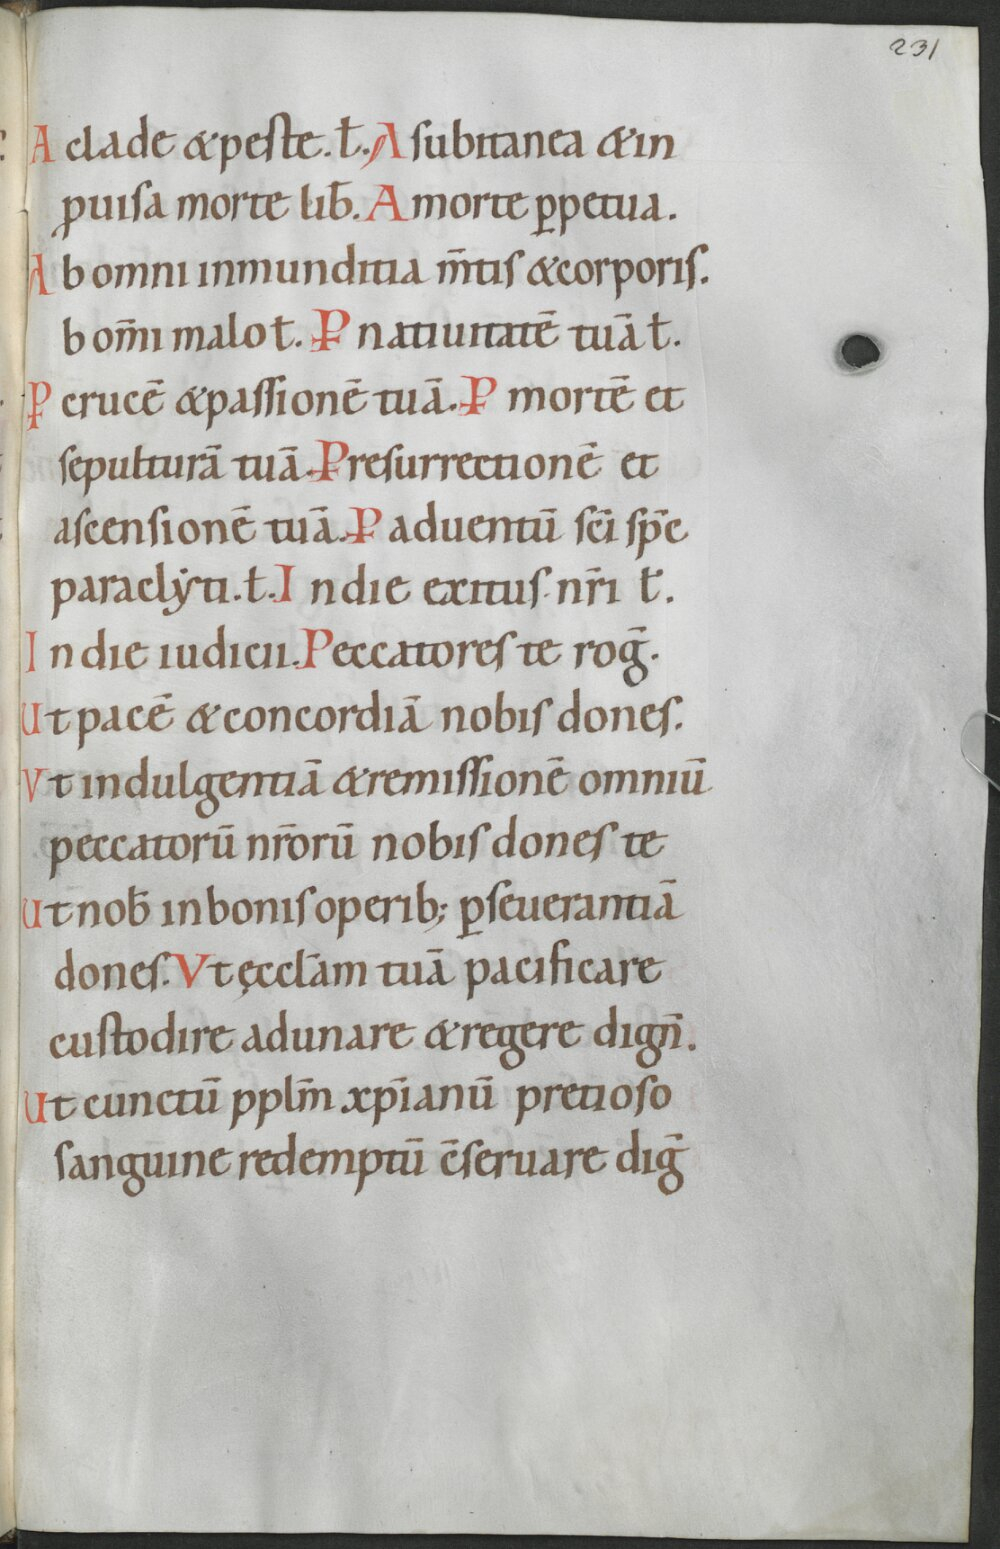 231
A clade & peste. ł. A subitanea & in
ꝓuisa morte lib̄. A morte ꝑpetua.
Ab omni inmunditia m̄tis & corporis.
b om̄i malo ł. Ꝑ natiuitatē tuā ł.
Ꝑ crucē & passionē tuā. Ꝑ mortē et
sepulturā tuā. Ꝑ resurrectionē et
ascensionē tuā. Ꝑ aduentū sc̄i sp̄c
paraclẏti. ł. In die exitus nr̄i ł.
In die iudicii. Peccatores te roḡ.
Ut pacē & concordiā nobis dones.
Vt indulgentiā & remissionē omniū
peccatorū nr̄orū nobis dones te
Ut nob̄ in bonis operib; ꝑseuerantiā
dones. Vt ęccłam tuā pacificare
custodire adunare & regere dign̄.
Ut cūnctū pplm̄ xp̄ianū pretioso
sanguine redemptū c̄seruare diḡ